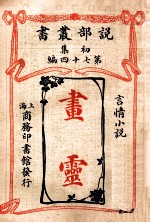 書叢部說
集初
編四十七第
言情小說
畫靈
上海商務印書館發行